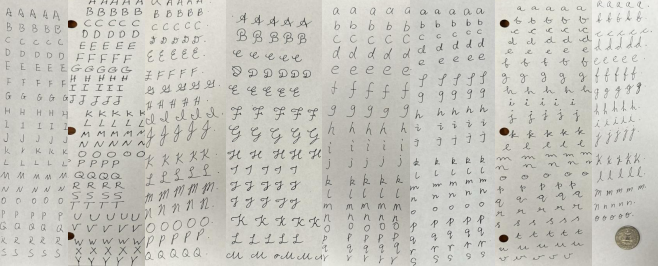 A A A A A
B B B B B
C C C C C
D D D D D
E E E E E
F F F F F
G G G G G
H H H H H
I I I I I
J J J J J
K K K K K
L L L L L
M M M M M
N N N N N
O O O O O
P P P P P
Q Q Q Q Q
R R R R R
S S S S S
A A A A A
B B B B B
C C C C C
D D D D D
E E E E E
F F F F F
G G G G G
H H H H H
I I I I I
J J J J J
K K K K K
L L L L L
M M M M M
N N N N N
O O O O O
P P P P P
Q Q Q Q
R R R R
S S S S
T T T T
U U U U U
V V V V V
W W W W W
X X X X X
Y Y Y Y Y
A A A A A
B B B B B.
C C C C C.
D D D D D.
E E E E E.
F F F F F.
G G G G G.
H H H H H.
I I I I I.
J J J J J
K K K K K.
L L L L L.
M M M M M.
N N N N N.
O O O O O.
P P P P P.
Q Q Q Q Q.
A A A A A
B B B B B
C C C C C
D D D D D
E E E E E
F F F F F
G G G G G
H H H H H
I I I I I
J J J J J
K K K K K
L L L L L
M M M M M
a a a a a
b b b b b
c c c c c
d d d d d
e e e e e
f f f f f
g g g g g
h h h h h
i i i i i
j j j j j
k k k k k
l l l l l
m m m m m
n n n n n
o o o o o
p p p p p
q q q q q
r r r r r
a a a a a
b b b b b
c c c c c
d d d d d
e e e e e
f f f f f
g g g g g
h h h h h
i i i i i
j j j j j
k k k k k
l l l l l
m m m m m
n n n n n
o o o o o
p p p p p
q q q q q
r r r r r
s s s s s
a a a a a
b b b b b
c c c c c
d d d d d
e e e e e
f f f f f
g g g g g
h h h h h
i i i i i
j j j j j
k k k k k
l l l l l
m m m m m
n n n n n
o o o o o
p p p p p
q q q q q
r r r r r
s s s s s
t t t t t
u u u u u
v v v v v
a a a a a.
b b b b b.
c c c c c.
d d d d d.
e e e e e.
f f f f f
g g g g g
h h h h h.
i i i i i.
j j j j j.
k k k k k
l l l l l.
m m m m m.
n n n n n.
o o o o o.